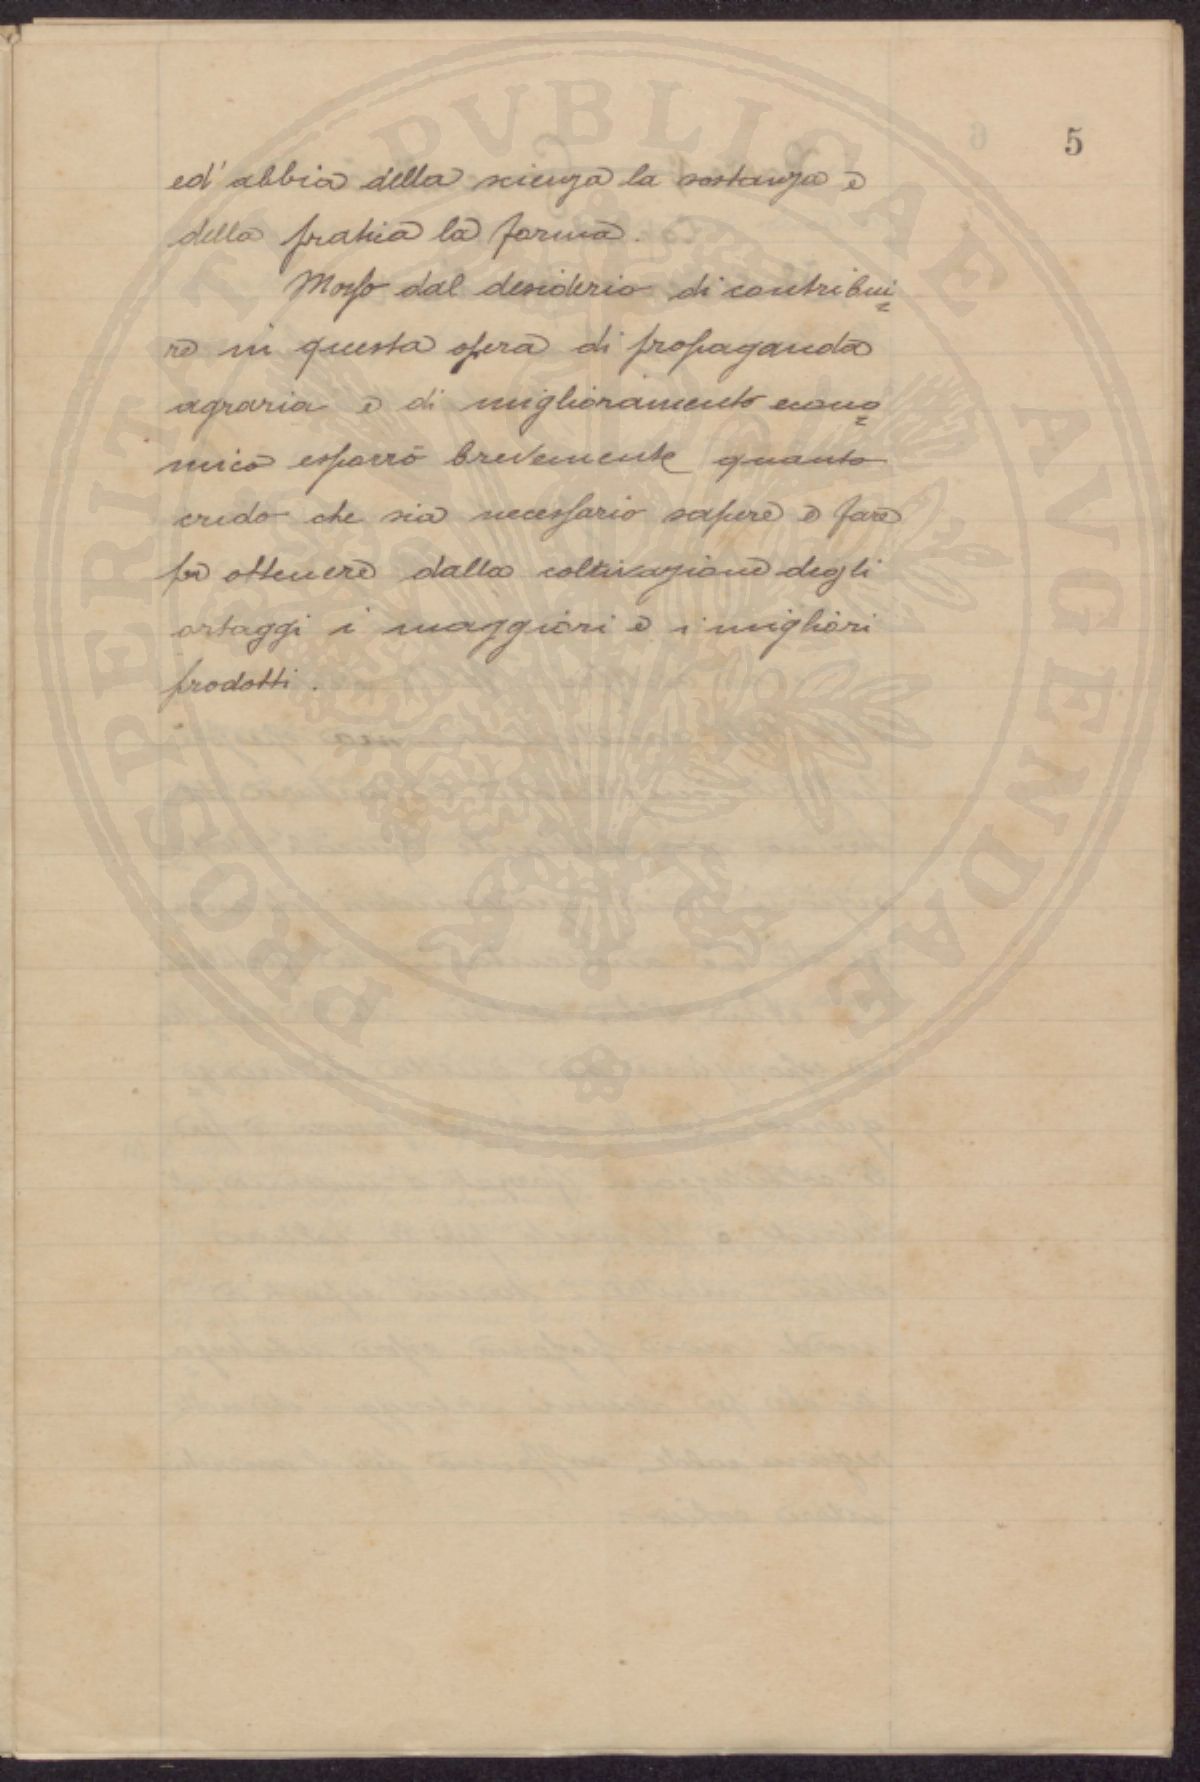 5
ed' abbia della scienza la sostanza e
della pratica la forma.
Mosso dal desiderio di contribui=
re in questa opera di propaganda
agraria e di miglioramento econo=
mico esporrò brevemente quanto
credo che sia necessario sapere e fare
per ottenere dalla coltivazione degli
ortaggi i maggiori e i migliori
prodotti.
PROSPERITATI PVBLICAE AVGENDAE